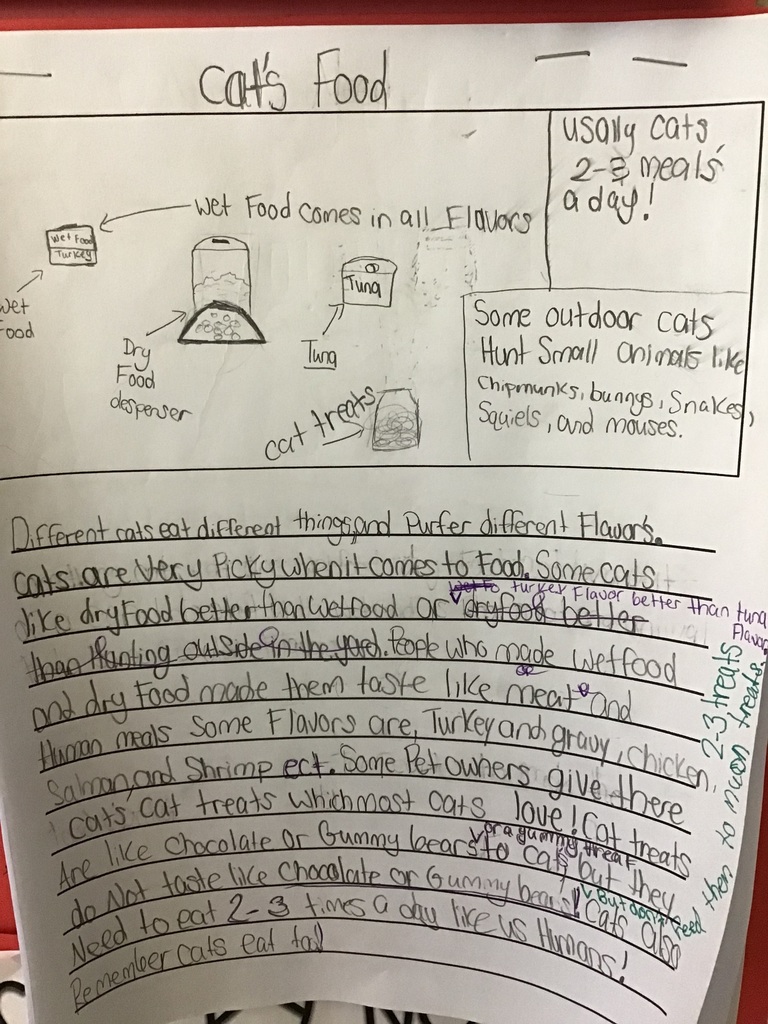 Cat's Food
Wet Food comes in all Flavors
Wet Food
Turkey
wet
Food
Dry
Food
despenser
Tuna
Tuna
cat treats
usally cats
2-3 meals
a day!
Some outdoor cats
Hunt Small animals like
Chipmunks, bunnys, Snakes,
Squiels, and mouses.
Different cats eat different things, and Purfer different Flavors.
cats are Very Picky when it comes to Food. Some cats
wet Fo turkey Flavor better than tuna
Flavor
like dry Food better than wet food or dry food better
than Hunting outside in the yard. People who made wet food
and dry Food made them taste like meat and
or
Human meals Some Flavors are, Turkey and gravy, chicken,
Salmon, and Shrimp ect. Some Pet owners give there
cats cat treats which most cats love! Cat treats
or a gummy treat
Are like Chocolate or Gummy bears to cats, but they
do Not taste like Chocolate or Gummy bears! Cats also
But don't feed them to much treats.
2-3 treats
Need to eat 2-3 times a day like us Humans!
Remember cats eat to!